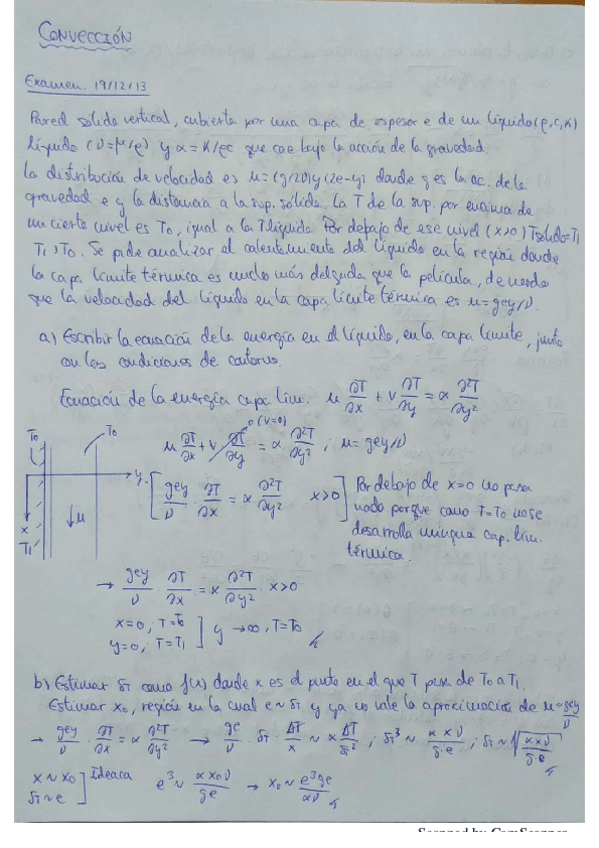 CONVECCIÓN
Examen. 19/12/13
Pared solida vertical, cubierta por una capa de espesor e de un líquido (ρ, c, K)
líquido (ν=μ/ρ) y α=K/ρc que cae bajo la acción de la gravedad.
La distribución de velocidad es u=(g/2ν)y(2e-y) donde g es la ac. de la
gravedad e y la distancia a la sup. sólida. La T de la sup. por encima de
un cierto nivel es T₀, igual a la T líquido. Por debajo de ese nivel (x>0) Tsolido=T₁
T₁>T₀. Se pide analizar el calentamiento del líquido en la región donde
la capa límite térmica es mucho más delgada que la película, de modo
que la velocidad del líquido en la capa límite térmica es u=gey/ν.
a) Escribir la ecuación de la energía en el líquido, en la capa límite, junto
con las condiciones de contorno.
Ecuación de la energía capa lím. u ∂T/∂x + v ∂T/∂y = α ∂²T/∂y²
u ∂T/∂x + v ∂T/∂y = α ∂²T/∂y² ; u=gey/ν
0 (v=0)
T₀ T₀
y
[ gey/ν · ∂T/∂x = α ∂²T/∂y² x>0 ]
Por debajo de x=0 no pasa
nada porque como T=T₀ no se
desarrolla ninguna cap. lím.
térmica.
↓u
x
T₁
→ gey/ν · ∂T/∂x = α ∂²T/∂y² x>0
x=0, T=T₀
y=0, T=T₁ ] y→∞, T=T₀
b) Estimar δT como f(x) donde x es el punto en el que T pasa de T₀ a T₁.
Estimar x₀, región en la cual e~δT y ya no vale la aproximación de u=gey/ν
→ gey/ν · ∂T/∂x = α ∂²T/∂y² → ge/ν · δT · ΔT/x ~ α ΔT/δT² ; δT³ ~ α x ν/g·e ; δT ~ ∛(αxν/g·e)
x~x₀
δT~e ] Idea ca e³ ~ α x₀ ν/ge → x₀ ~ e³ge/αν
Scanned by CamScanner